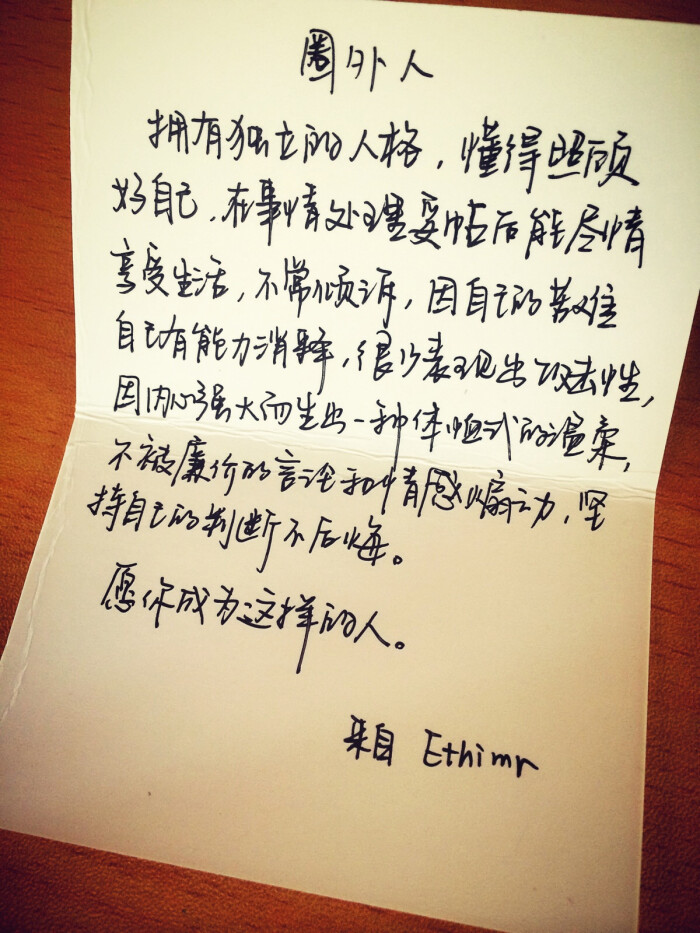 圈外人
拥有独立的人格，懂得照顾
好自己，在事情处理妥帖后能尽情
享受生活，不常倾诉，因自己的苦难
自己有能力消释，很少表现出攻击性，
因内心强大而生出一种体恤式的温柔，
不被廉价的言论和情感煽动，坚
持自己的判断不后悔。
愿你成为这样的人。
来自 Ethimr